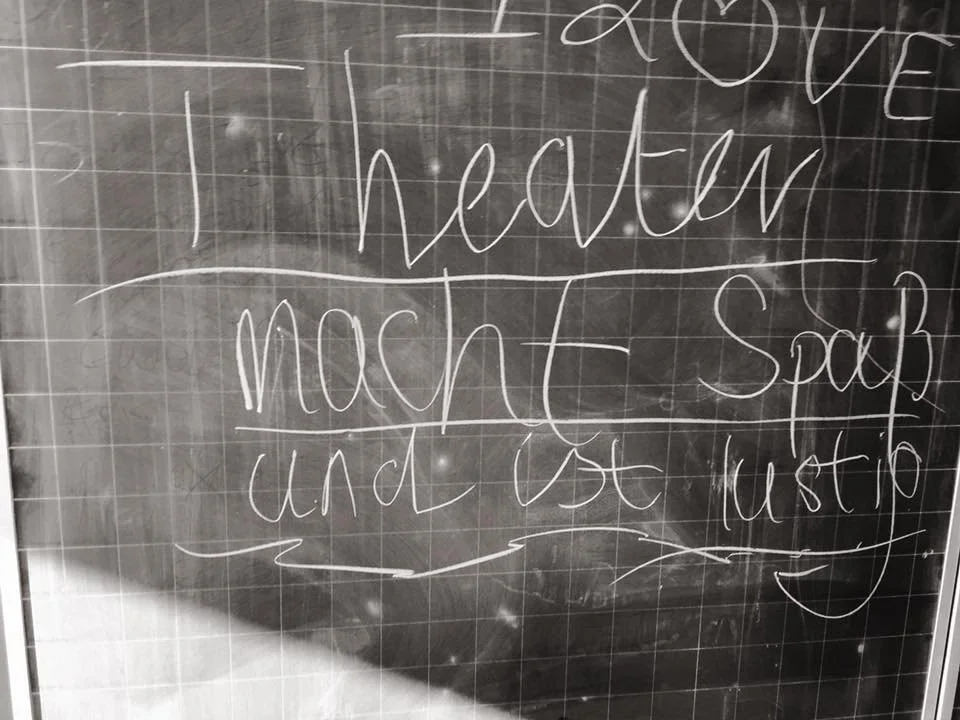 I LOVE
Theater
macht Spaß
und ist lustig